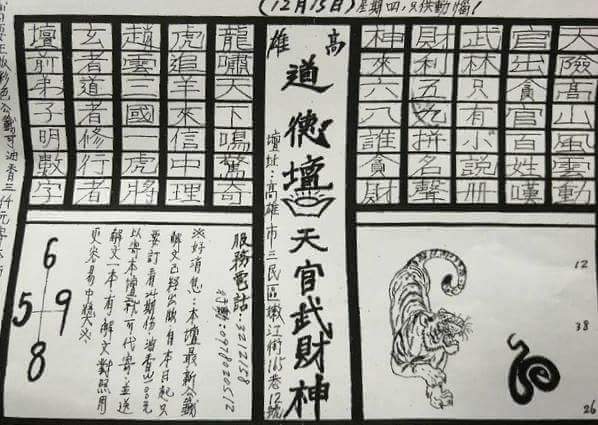 (12月15日)星期四,只供動惱!
天險高山風雲動
官出貪官百姓嘆
武林只有小說冊
財利五九拼名聲
神來六八誰貪財
12
38
26
高雄
道德壇 天官武財神
壇址:高雄市三民區嫩江街165巷12號
龍嘯天下喝驚奇
虎追羊來信中理
趙雲三國一虎將
玄者道者修行者
壇前弟子明數字
服務電話:3212158
行動:0918020512
好消息:本壇最新六籤
解文已經出版自本日起只
要訂看此期份油香100元
以寄本壇就可代寄並送
解文一本有解文對照用
更容易中獎
6
5 9
8